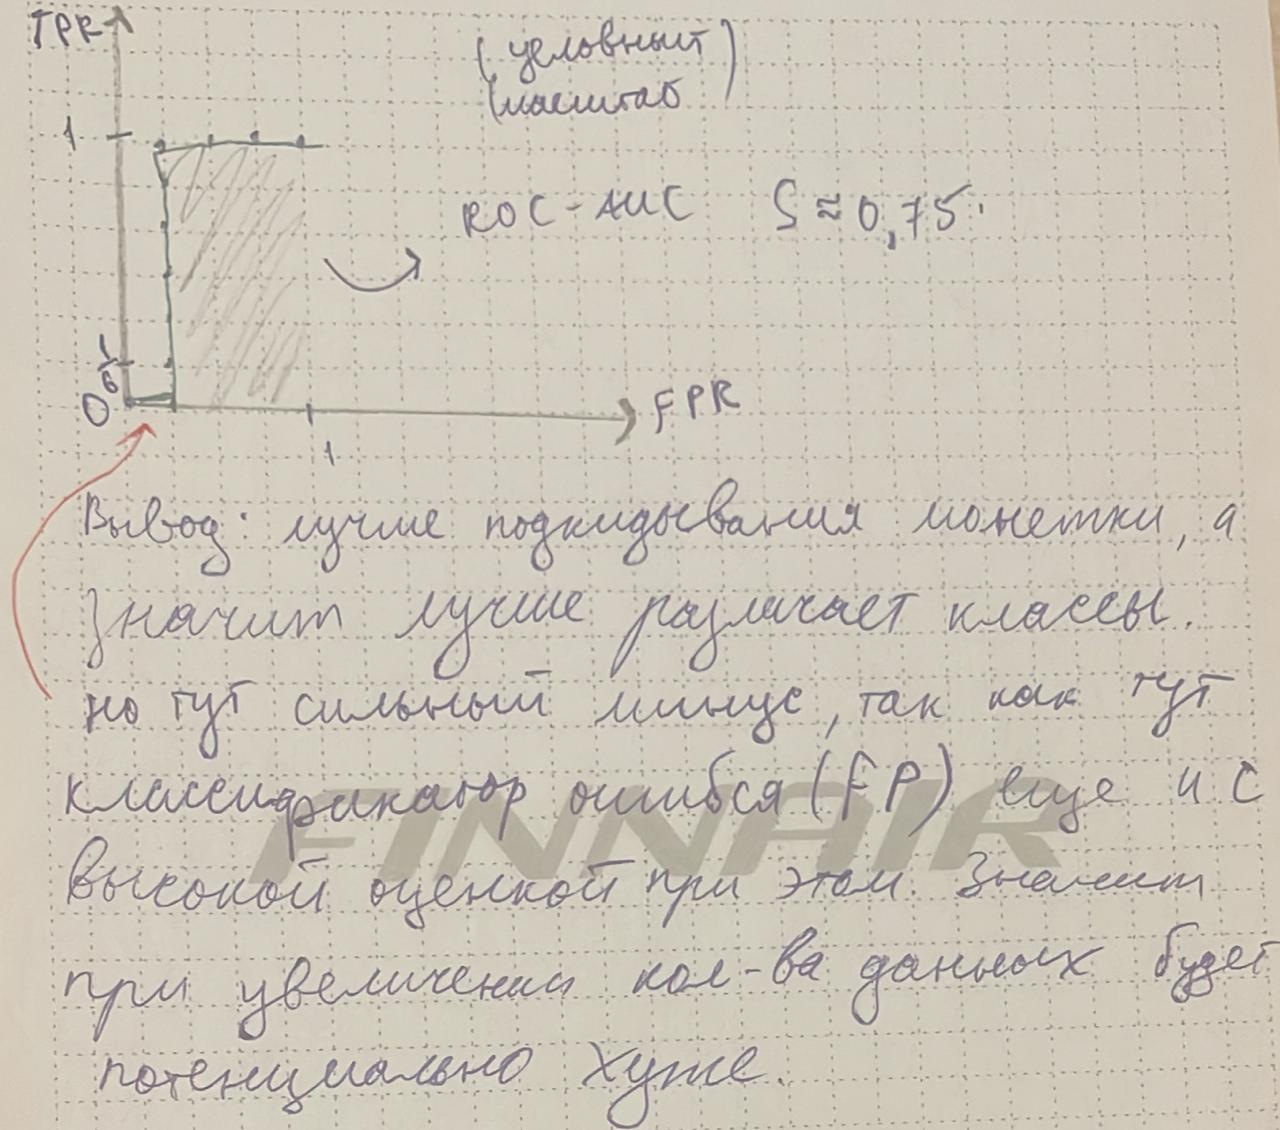 TPR
(условный
масштаб)
1
ROC-AUC S ≈ 0,75.
1/6
0
FPR
1
Вывод: лучше подкидывания монетки, а
значит лучше различает классы.
но тут сильный минус, так как тут
классификатор ошибся (FP) еще и с
FINNAIR
высокой оценкой при этом. Значит
при увеличении кол-ва данных будет
потенциально хуже.